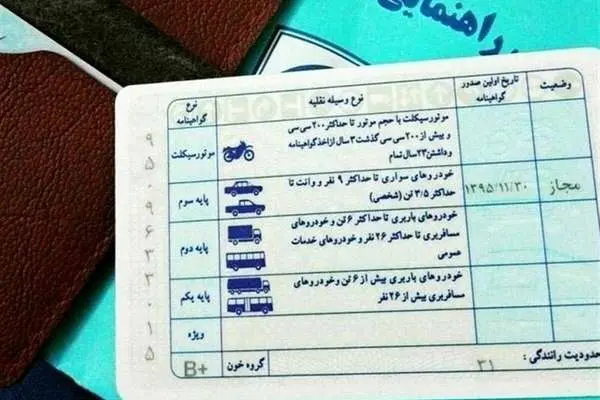 راهنمایی
وضعیت
تاریخ اولین صدور
گواهینامه
نوع وسیله نقلیه
نوع
گواهینامه
موتورسیکلت با حجم موتور تا حداکثر ۲۰۰ سی سی
و بیش از ۲۰۰ سی سی گذشت ۳ سال از اخذ گواهینامه
وداشتن ۲۳ سال تمام
موتورسیکلت
مجاز
۱۳۹۵/۱۱/۳۰
خودروهای سواری تا حداکثر ۹ نفر و وانت تا
حداکثر ۳/۵ تن (شخصی)
پایه سوم
خودروهای باربری تا حداکثر ۶ تن و خودروهای
مسافربری تا حداکثر ۲۶ نفر و خودروهای خدمات
عمومی
پایه دوم
خودروهای باربری بیش از ۶ تن و خودروهای
مسافربری بیش از ۲۶ نفر
پایه یکم
ویژه
حدودیت رانندگی :
۳۱
گروه خون
B+
۹
۵
۰
۹
۶
۳
۳
۰
۱
۵